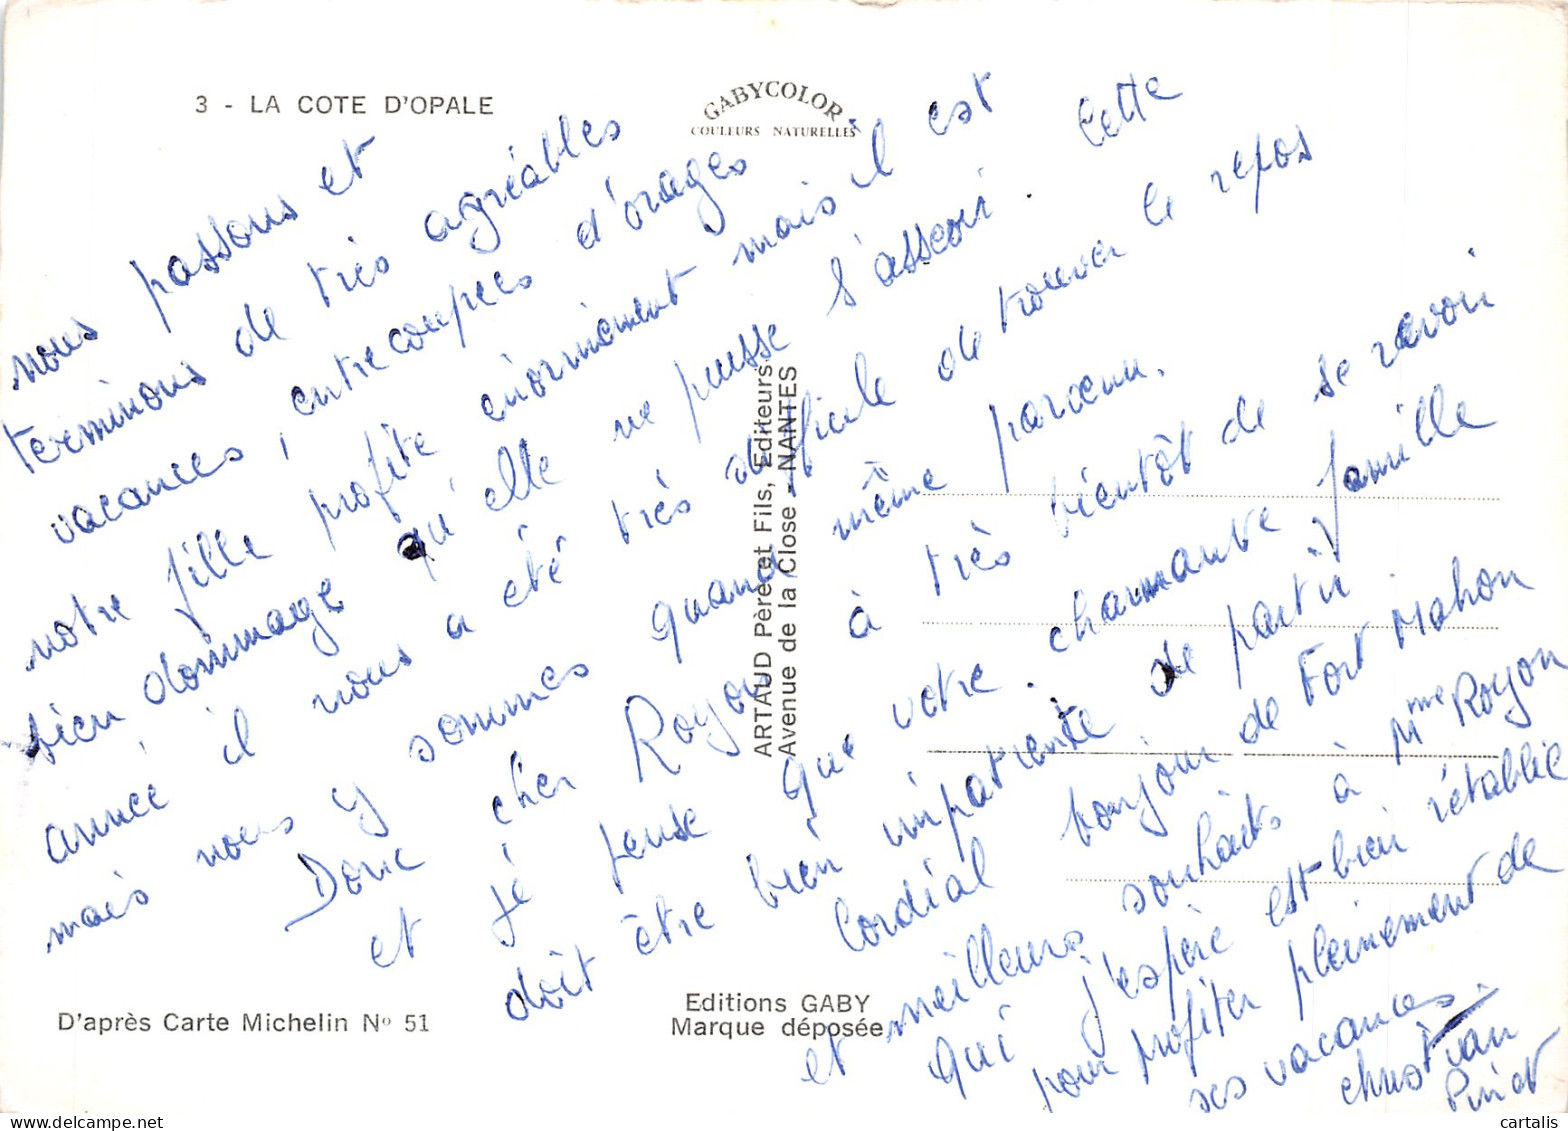 3 - LA COTE D'OPALE
GABYCOLOR
COULEURS NATURELLES
nous passons et
terminons de très agréables
vacances, entrecoupées d'orages
notre fille profite énormément mais il est
bien dommage qu'elle ne puisse s'asseoir. Cette
année il nous a été très difficile de trouver le repos
mais nous y sommes quand même parvenu.
Donc cher Royon à très bientôt de se revoir
et je pense que votre charmante famille
doit être bien impatiente de partir.
Cordial bonjour de Fort Mahon
et meilleurs souhaits à Mme Royon
qui j'espère est bien rétablie
pour profiter pleinement de
ses vacances.
Christian
Pinet
ARTAUD Père et Fils, Editeurs
Avenue de la Close - NANTES
D'après Carte Michelin Nº 51
Editions GABY
Marque déposée
cartalis